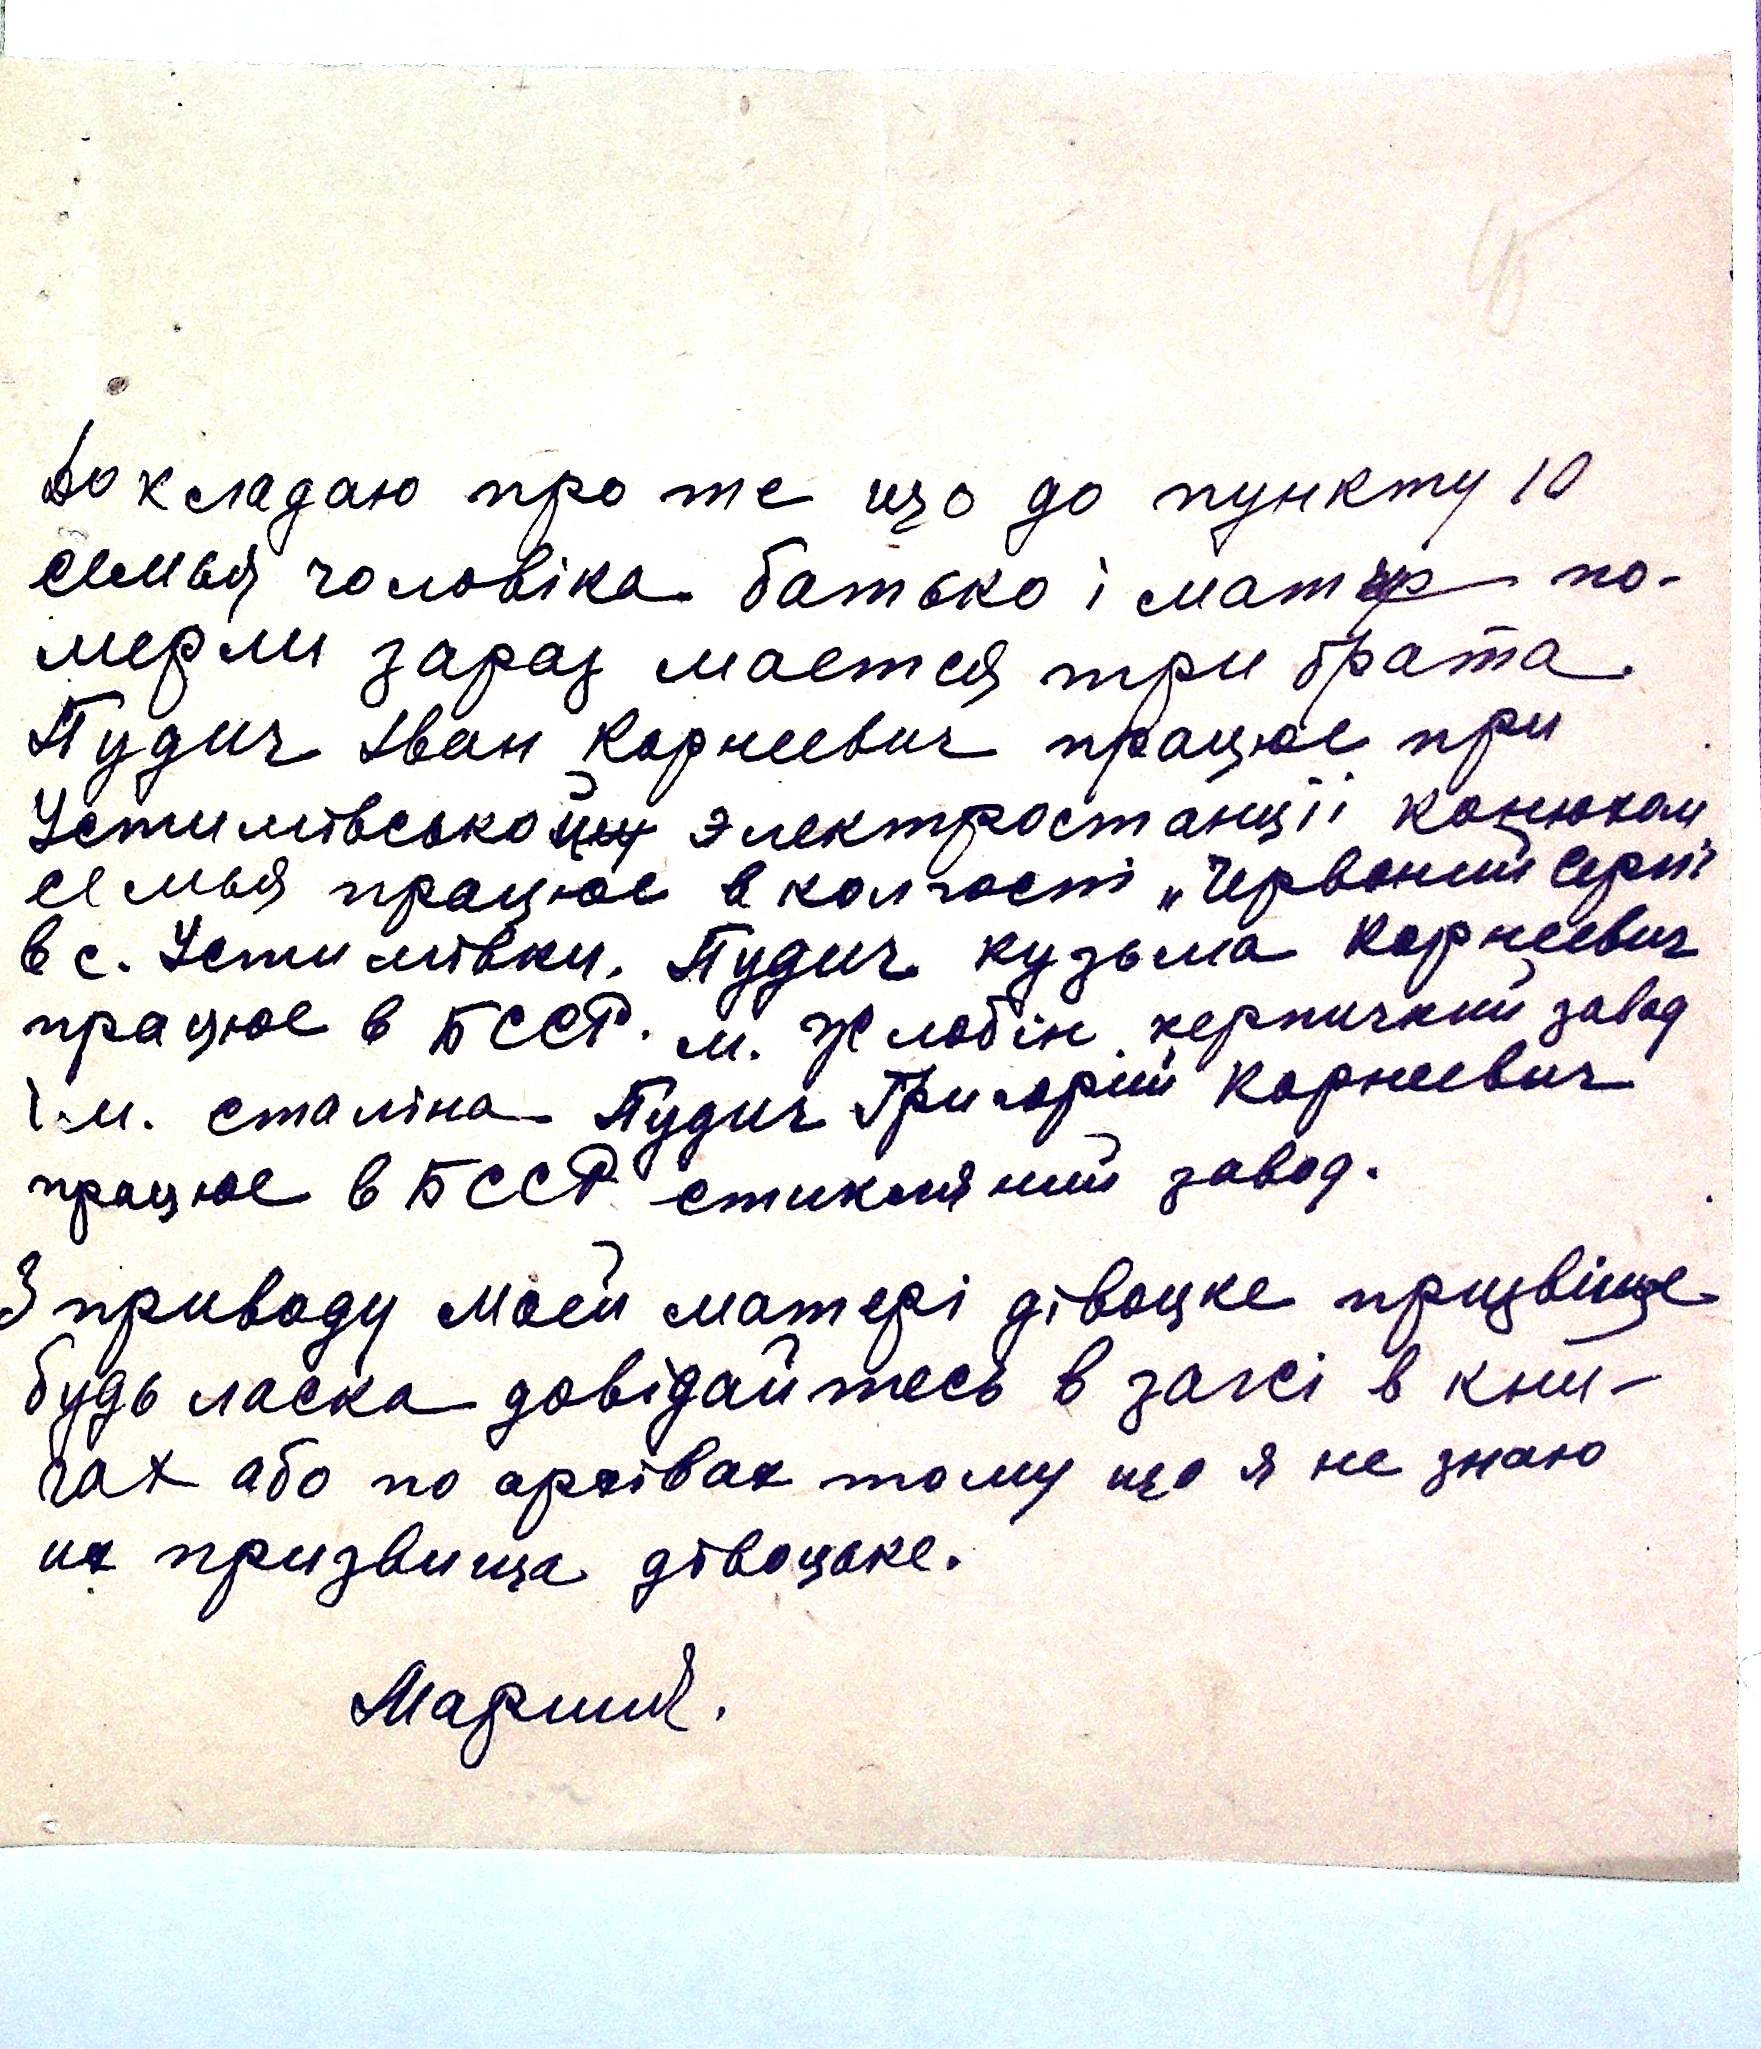 Докладаю про те що до пункту 10
семья чоловіка батько і матер по-
мерли зараз мается три брата.
Пудич Іван Корнеевич працює при
Устимівської электростанції конюхом
семья працює в колгості „Червоний Серп"
в с. Устимівки. Пудич кузьма Корнеевич
працює в БССР. м. Жлобін керпичний завод
ім. сталіна Пудич Григорий Корнеевич
працює в БССР стикляний завод.
З приводу моей матері дівоцке призвіще
будь ласка довідайтесь в загсі в кни-
гах або по архівах тому що я не знаю
их призвища дівоцьке.